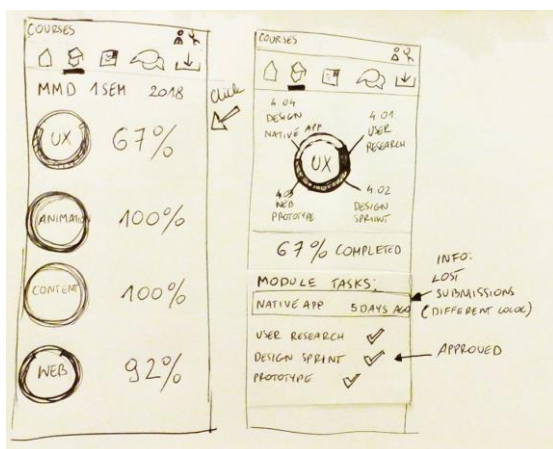 COURSES
MMD 1SEM 2018
UX 67%
ANIMATION 100%
CONTENT 100%
WEB 92%
Click
COURSES
4.04
DESIGN
NATIVE APP
4.01
USER
RESEARCH
UX
4.03
WEB
PROTOTYPE
4.02
DESIGN
SPRINT
67% COMPLETED
MODULE TASKS:
NATIVE APP 5 DAYS AGO
USER RESEARCH
DESIGN SPRINT
PROTOTYPE
INFO:
LOST
SUBMISSIONS
(DIFFERENT COLOR)
APPROVED